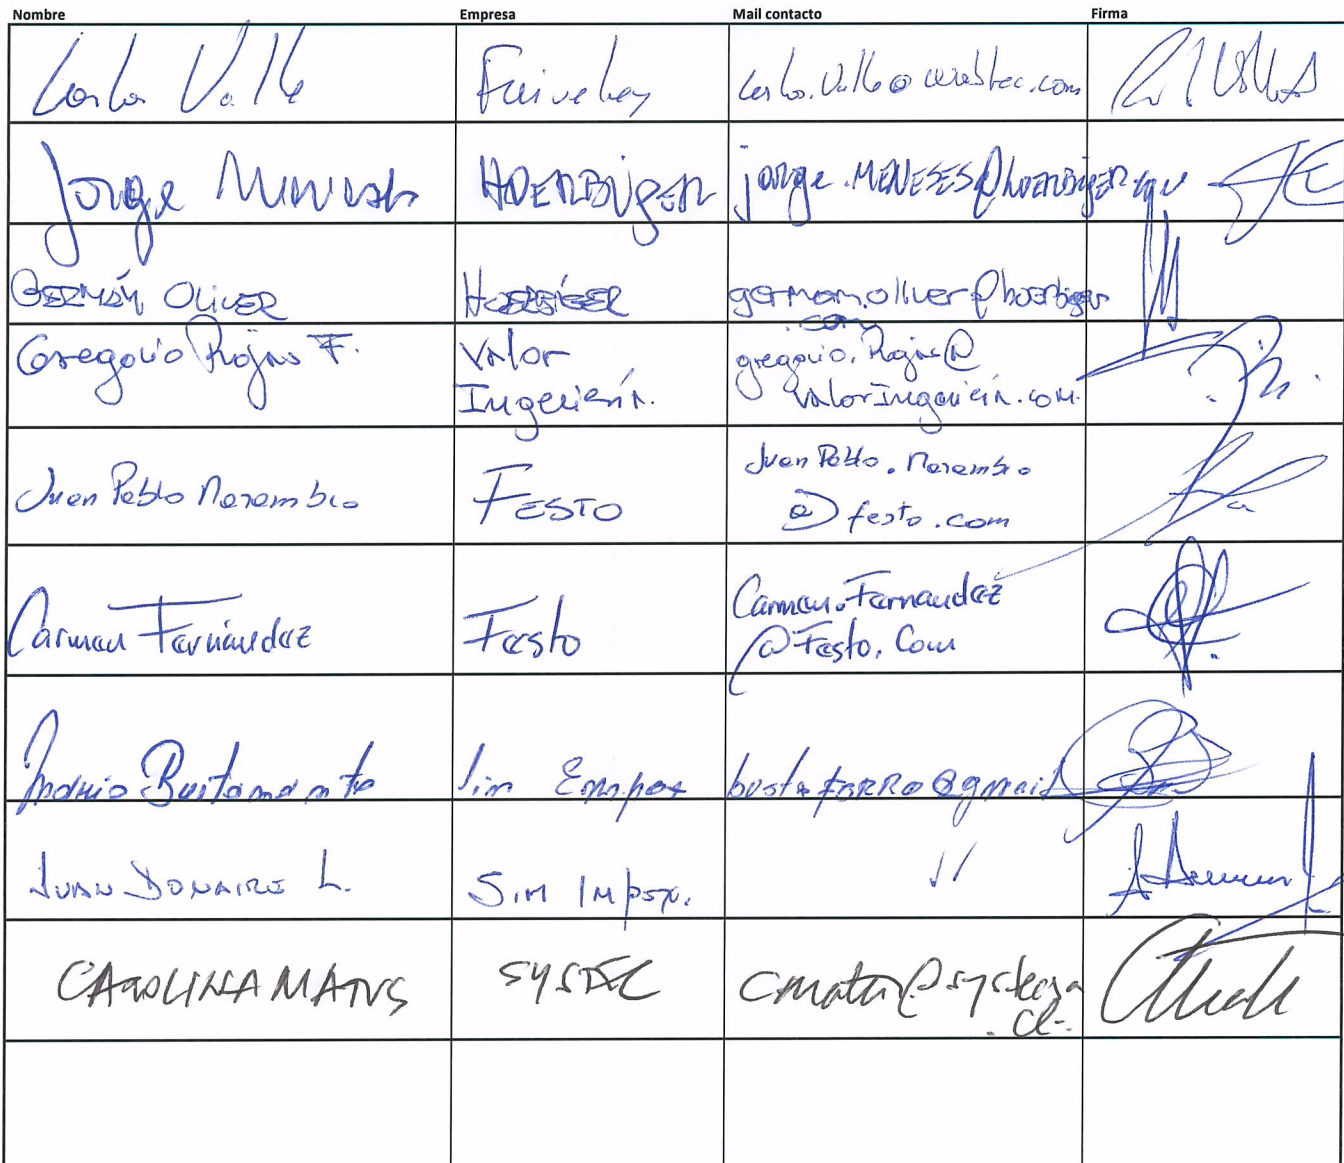 Nombre Empresa Mail contacto Firma
Carlos Valle Faiveley carlos.valle@wabtec.com
Jorge Meneses HOERBIGER jorge.MENESES@HOERBIGER.com
GERMÁN OLIVER HOERBIGER german.oliver@hoerbiger
.com
Gregorio Rojas F. Valor gregorio.Rojas@
Ingeniería. valorIngenieria.com.
Juan Pablo Marambio FESTO Juan Pablo.Marambio
@festo.com
Carmen Fernández Festo Carmen.Fernandez
@Festo.Com
Mario Bustamante Sim bustaferro@gmail
JUAN DONAIRE L. SIM IMPEX. 
CAROLINA MATUS SYSTEC cmatus@systecsa
.cl.